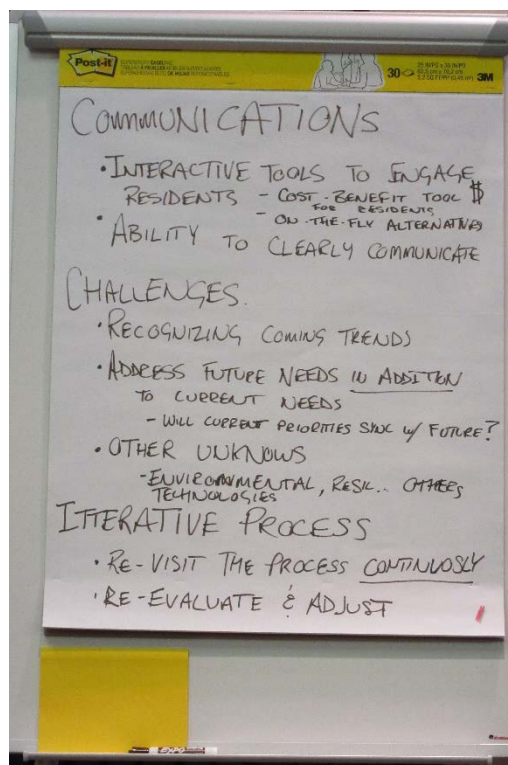 Post-it
30
3M
COMMUNICATIONS
• INTERACTIVE TOOLS TO ENGAGE
RESIDENTS - COST-BENEFIT TOOL $
FOR RESIDENTS
- ON-THE-FLY ALTERNATIVES
• ABILITY TO CLEARLY COMMUNICATE
CHALLENGES.
• RECOGNIZING COMING TRENDS
• ADDRESS FUTURE NEEDS IN ADDITION
TO CURRENT NEEDS
- WILL CURRENT PRIORITIES SYNC W/ FUTURE?
• OTHER UNKNOWS
- ENVIRONMENTAL, RESIL.. OTHERS
TECHNOLOGIES
ITTERATIVE PROCESS
• RE-VISIT THE PROCESS CONTINUOSLY
• RE-EVALUATE & ADJUST
EXPO